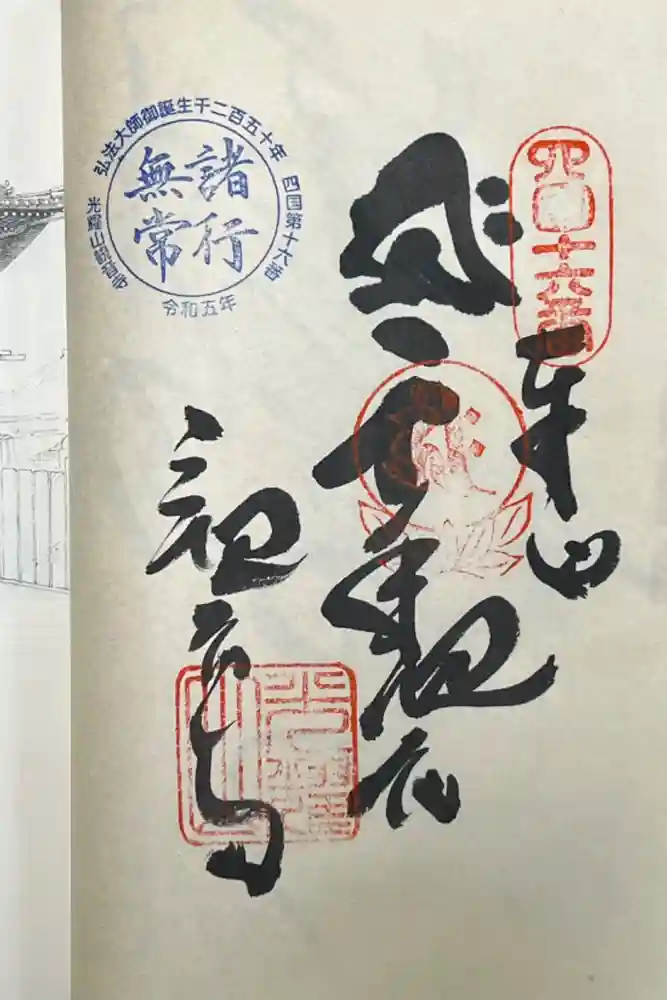 四国十六番
奉納
千手観音
観音寺
弘法大師御誕生千二百五十年
四国第十六番
光耀山観音寺
令和五年
諸行
無常